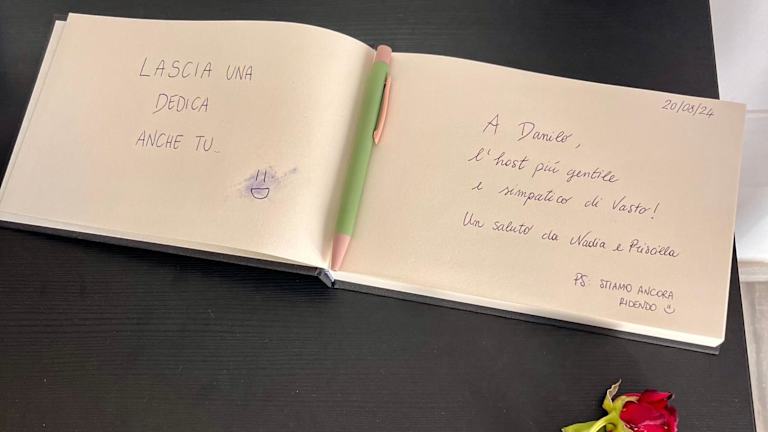 LASCIA UNA
DEDICA
ANCHE TU...
20/08/24
A Danilo,
l'host più gentile
e simpatico di Vasto!
Un saluto da Nadia e Priscilla
PS: STIAMO ANCORA
RIDENDO